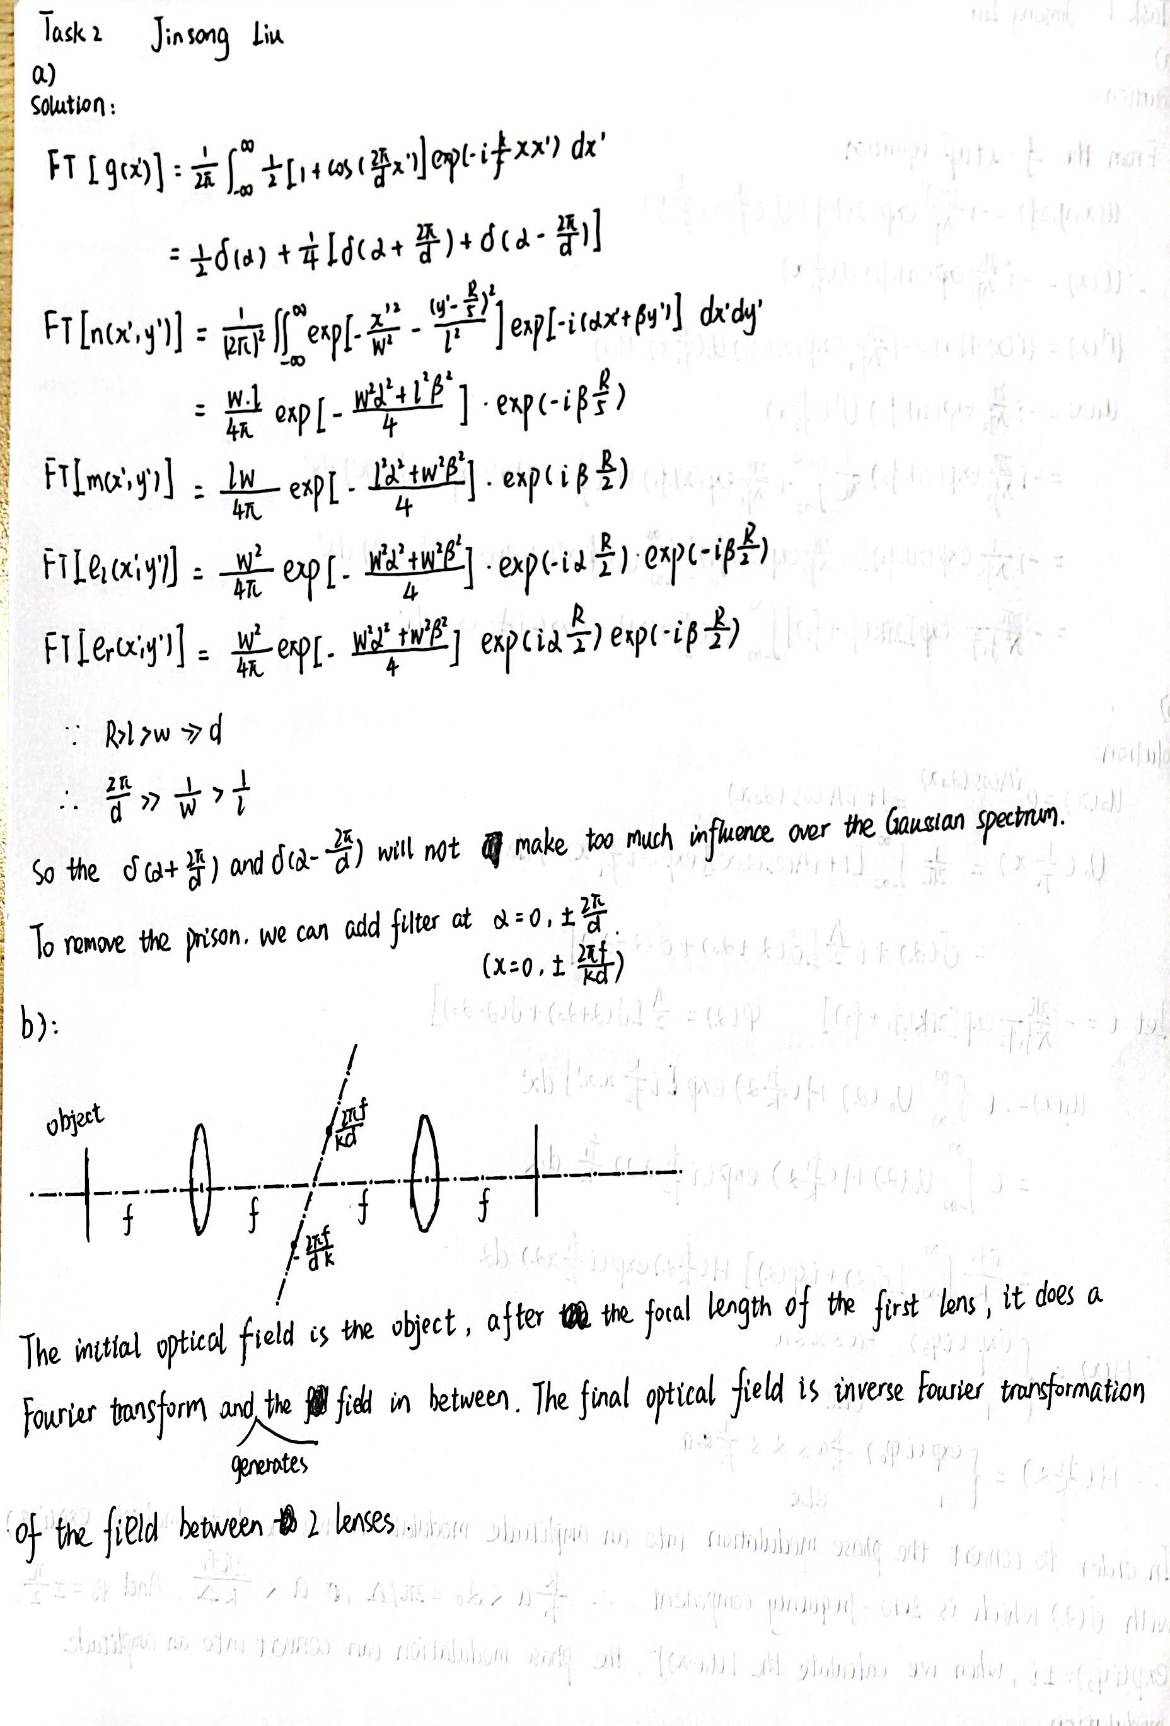 Task 2 Jinsong Liu
a)
Solution:
FT[g(x')] = 1/2π ∫_{-∞}^{∞} 1/2 [1 + cos(2π/d x')] exp(-i k/f xx') dx'
= 1/2 δ(α) + 1/4 [δ(α + 2π/d) + δ(α - 2π/d)]
FT[n(x',y')] = 1/(2π)² ∫∫_{-∞}^{∞} exp[- x'²/w² - (y' - R/5)²/l²] exp[-i(αx' + βy')] dx'dy'
= w·l/4π exp[- (w²α² + l²β²)/4] · exp(-iβ R/5)
FT[m(x',y')] = lw/4π exp[- (l²α² + w²β²)/4] · exp(iβ R/2)
FT[e_l(x',y')] = w²/4π exp[- (w²α² + w²β²)/4] · exp(-iα R/2) · exp(-iβ R/2)
FT[e_r(x',y')] = w²/4π exp[- (w²α² + w²β²)/4] exp(iα R/2) exp(-iβ R/2)
∵ R>l>w≫d
∴ 2π/d ≫ 1/w > 1/l
So the δ(α + 2π/d) and δ(α - 2π/d) will not make too much influence over the Gaussian spectrum.
To remove the prison. we can add filter at α = 0, ± 2π/d.
(x = 0, ± 2πf/kd)
b):
object
2πf/kd
f f f f
- 2πf/dk
The initial optical field is the object, after the focal length of the first lens, it does a
Fourier transform and the field in between. The final optical field is inverse Fourier transformation
generates
of the field between 2 lenses.